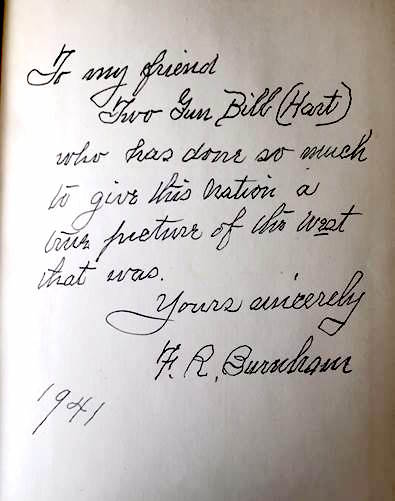 To my friend
Two Gun Bill (Hart)
who has done so much
to give this nation a
true picture of the west
that was.
Yours sincerely
F. R. Burnham
1941